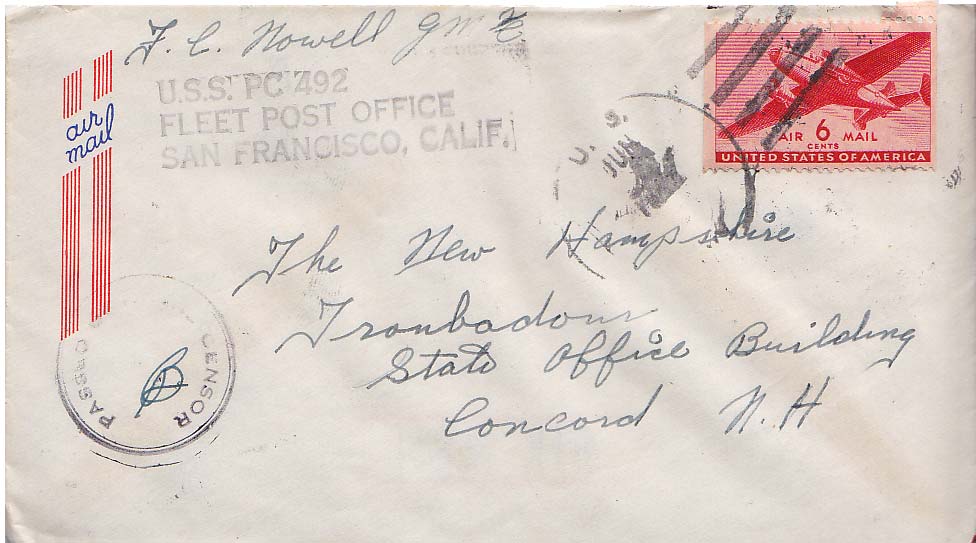 F. C. Nowell GM
U.S.S. PC 492
FLEET POST OFFICE
SAN FRANCISCO, CALIF.
air
mail
U. S.
JUN
AIR 6 MAIL
CENTS
UNITED STATES OF AMERICA
The New Hampshire
Troubadour
State Office Building
Concord N. H
PASSED
CENSOR